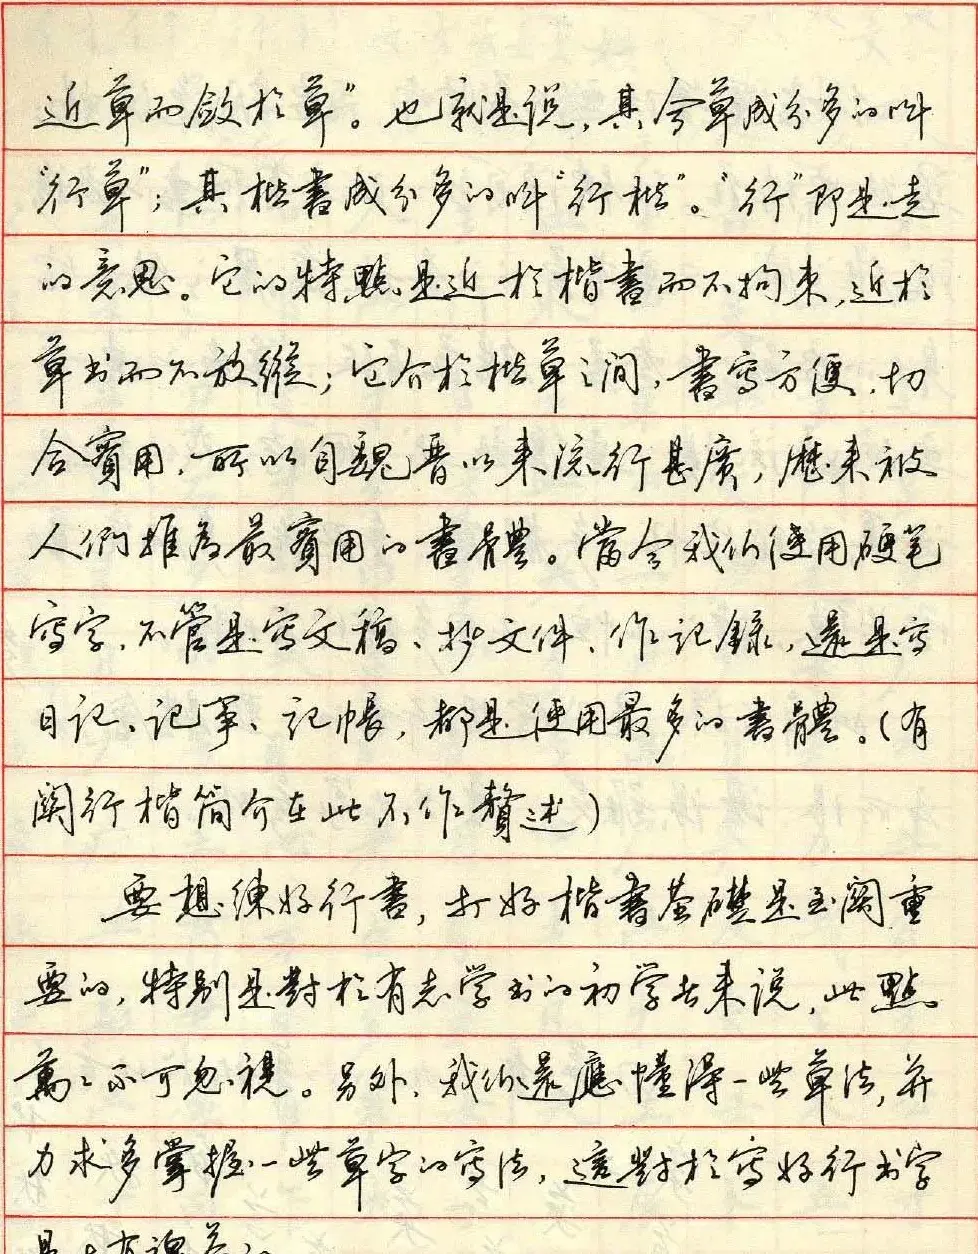 近草而斂於草”。也就是说,其今草成分多的叫
“行草”;其楷書成分多的叫“行楷”。“行”即是走
的意思。它的特點是近於楷書而不拘束,近於
草书而不放縱;它介於楷草之间,書寫方便,切
合實用,所以自魏晋以来流行甚廣,歷来被
人們推為最實用的書體。當今我们使用硬笔
寫字,不管是寫文稿、抄文件、作記錄,還是寫
日記、記事、記帳,都是使用最多的書體。(有
関行楷简介在此不作贅述)
要想練好行書,打好楷書基礎是至関重
要的,特别是對於有志学书的初学者来说,此點
萬万不可忽視。另外,我们還應懂得一些草法,并
力求多掌握一些草字的寫法,這對於寫好行书字